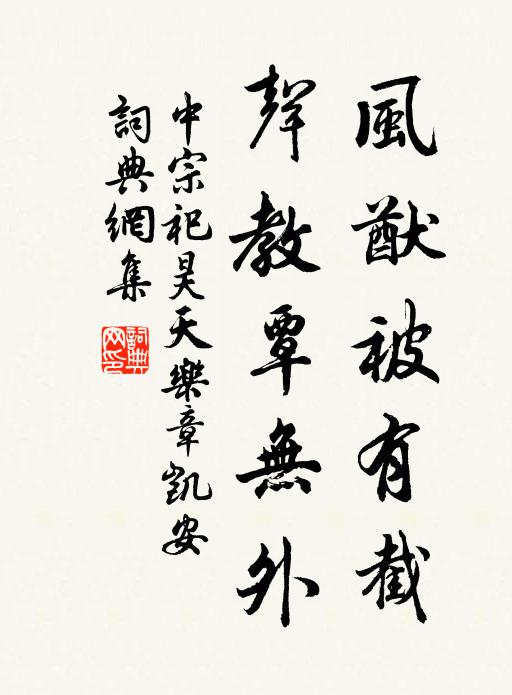 風猷被有截
聲教覃無外
中宗祀昊天樂章凱安
詞典網集
詞典网印